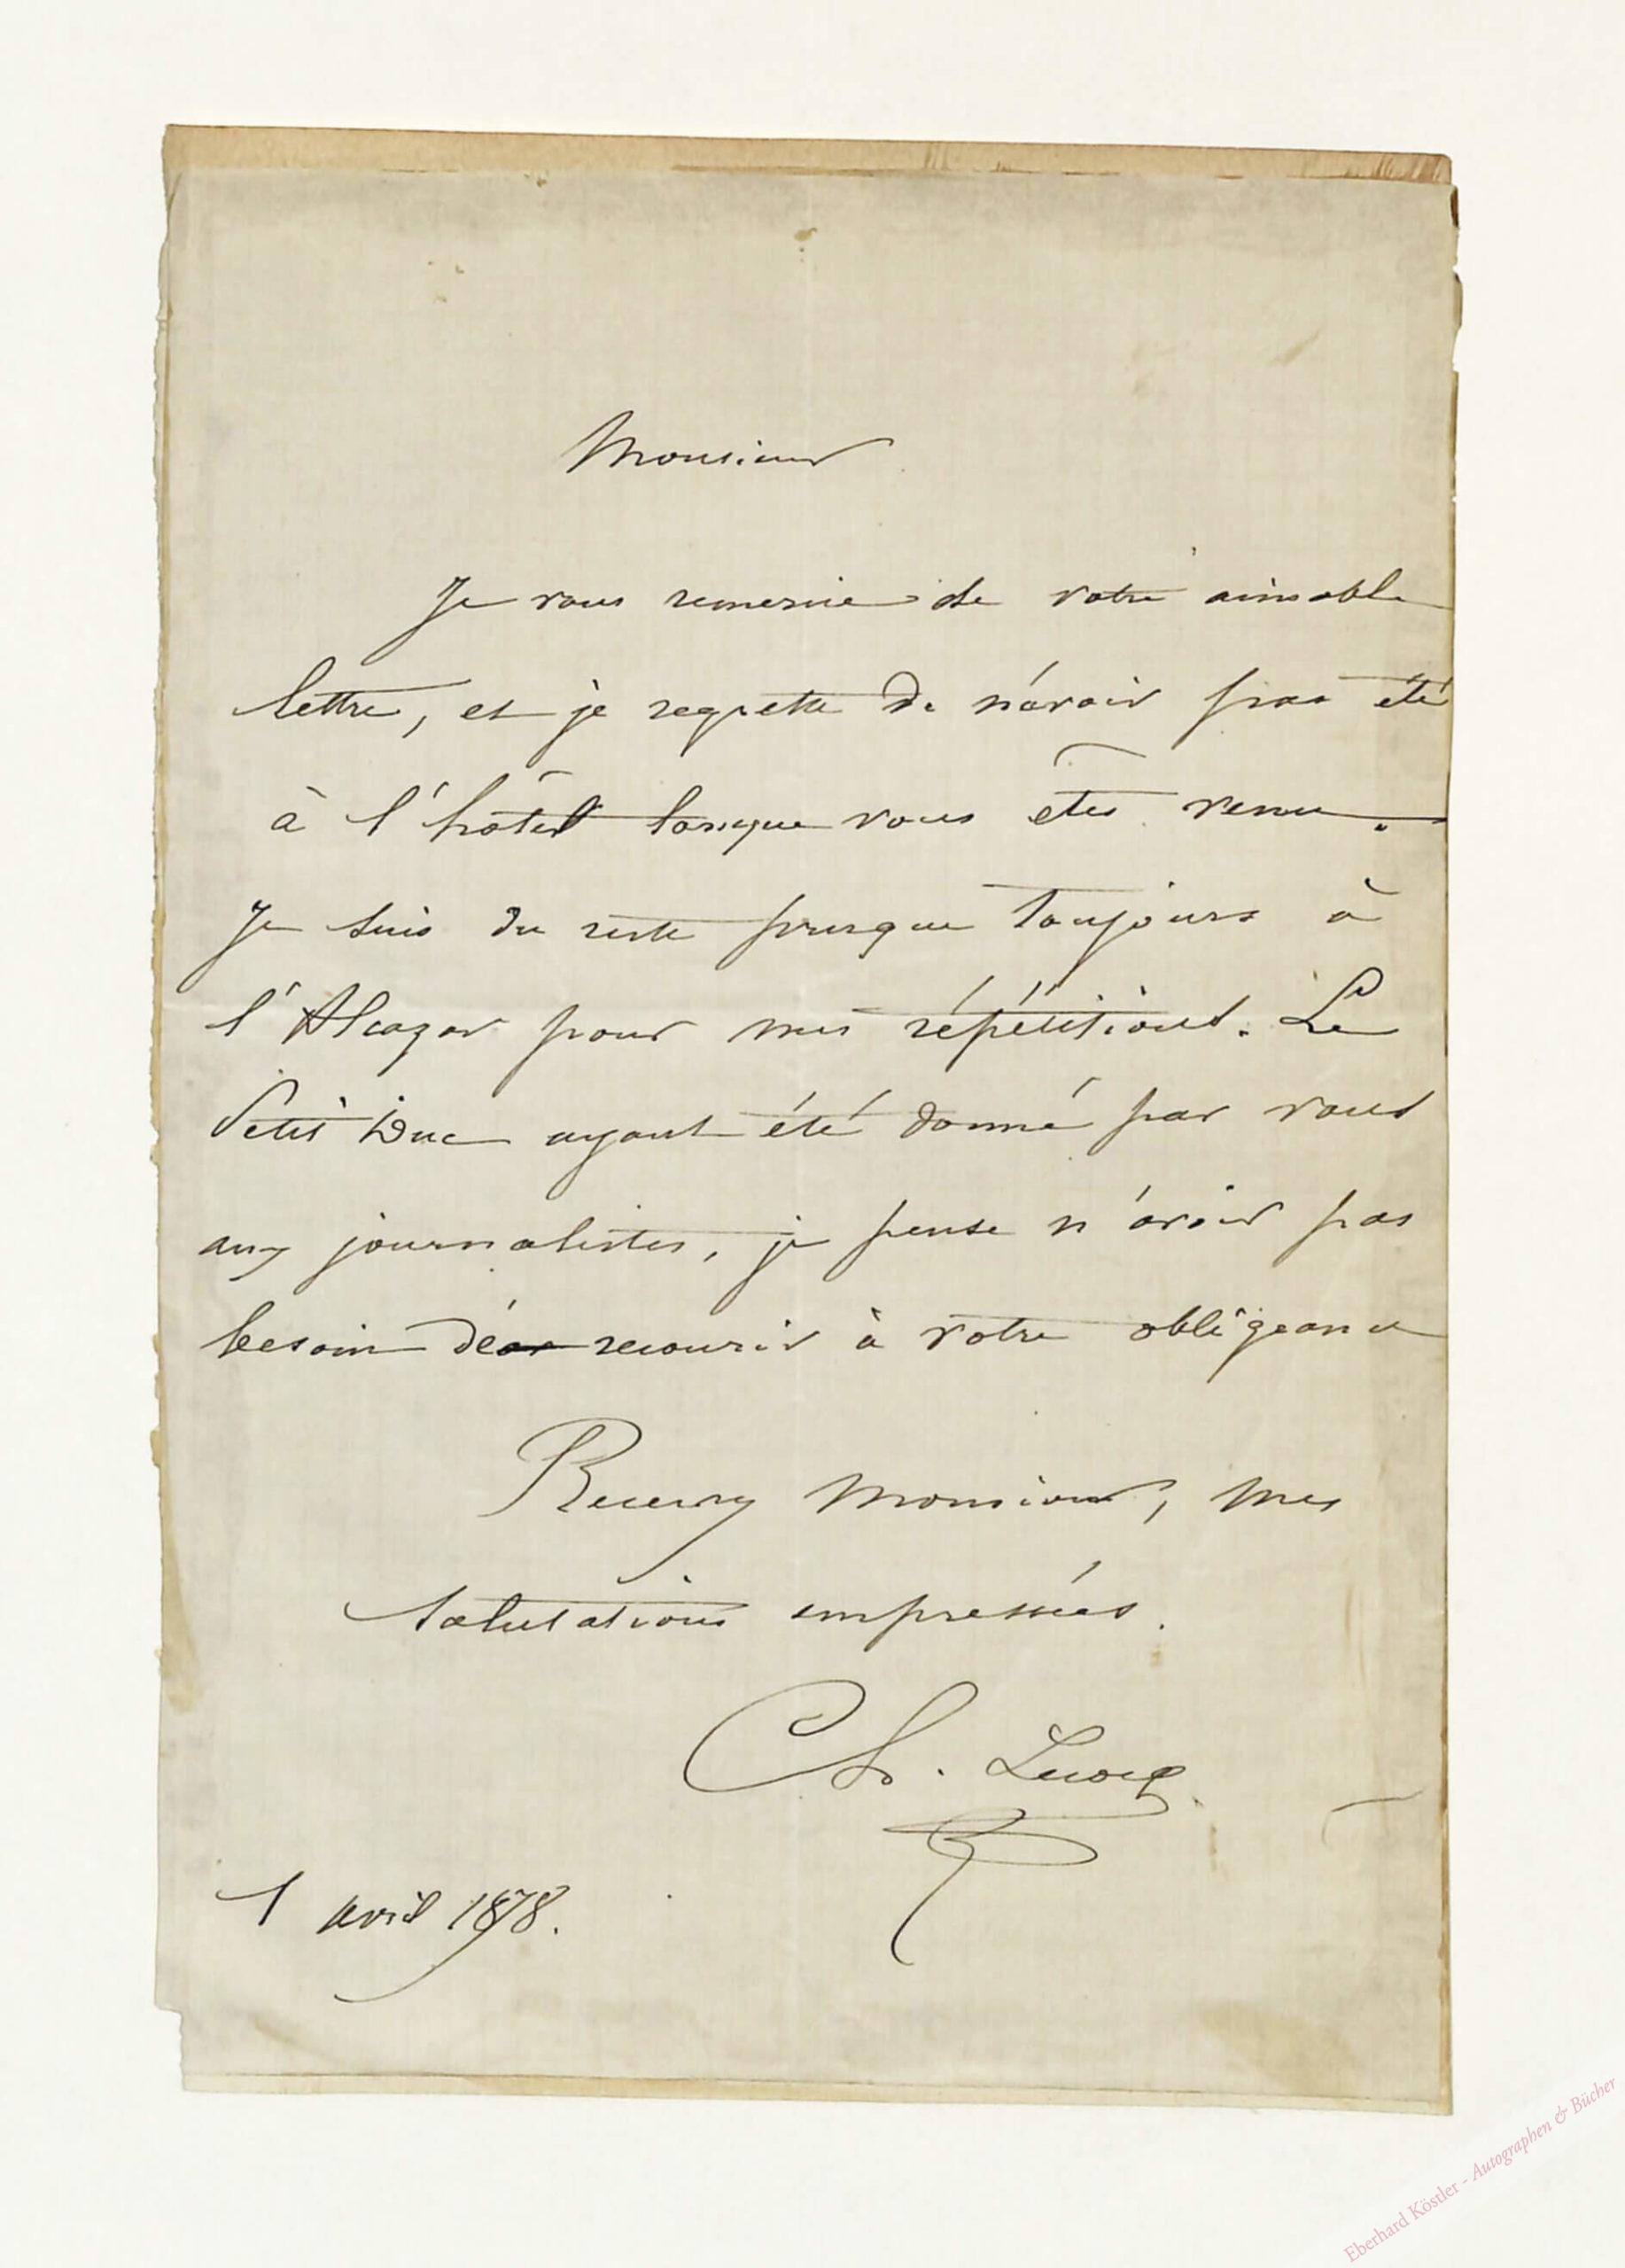 Monsieur
Je vous remercie de votre aimable
lettre, et je regrette de n'avoir pas été
à l'hôtel lorsque vous êtes venu.
Je suis du reste presque toujours à
l'Alcazar pour mes répétitions. Le
Petit Duc ayant été donné par vous
aux journalistes, je pense n'avoir pas
besoin de recourir à votre obligeance
Recevez Monsieur, mes
salutations empressées.
Ch. Lecocq
1 avril 1878.
Eberhard Köstler - Autographen & Bücher